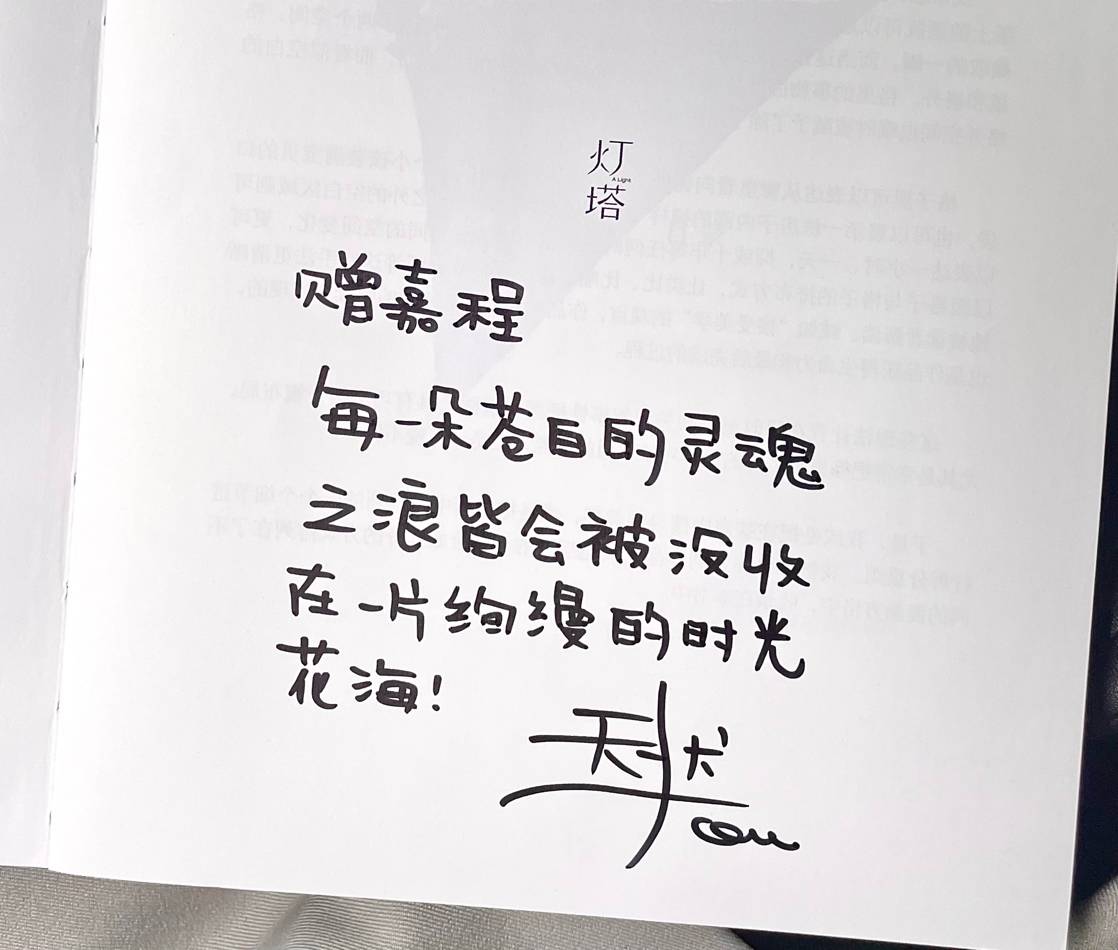 灯
A Light
塔
赠嘉程
每一朵苍白的灵魂
之浪皆会被没收
在一片绚缦的时光
花海!